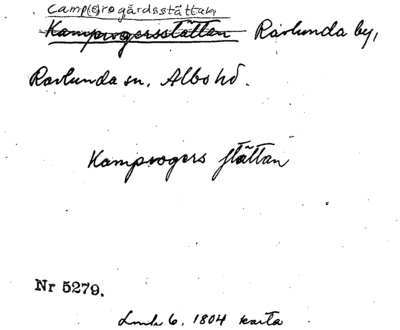 Camp(e)rogårdsstättan
Kamprogersstättan Ravlunda by,
Ravlunda sn, Albo hd.
Kamprogers stättan
Nr 5279.
Lmk 6, 1804 karta